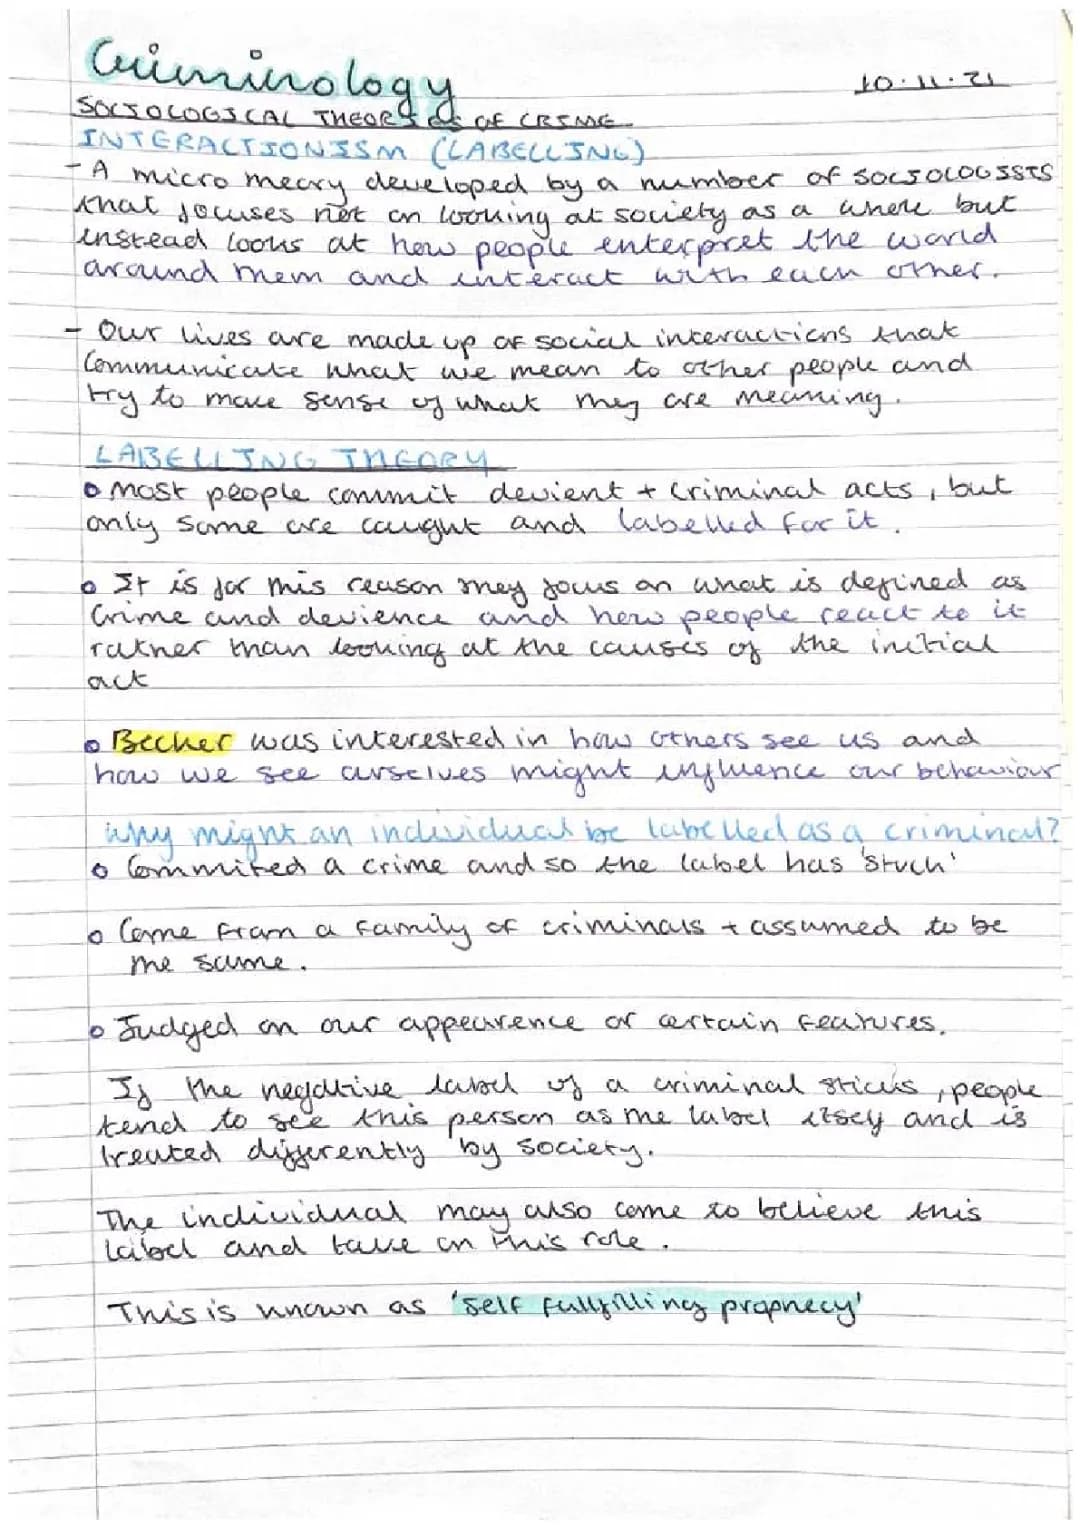 Criminology
10.11.21
SOCIOLOGICAL THEORIES OF CRIME
INTERACTIONISM (LABELLING)
- A micro theory developed by a number of SOCIOLOGISTS
that focuses not on looking at society as a whole but
instead looks at how people enterpret the world
around them and interact with each other.
- Our lives are made up of social interactions that
Communicate what we mean to other people and
try to make sense of what they are meaning.
LABELLING THEORY
• Most people commit devient + criminal acts, but
only some are caught and labelled for it.
• It is for this reason they focus on what is defined as
Crime and devience and how people react to it
rather than looking at the causes of the initial
act
• Becker was interested in how others see us and
how we see ourselves might influence our behaviour
Why might an individual be labelled as a criminal?
• Commited a crime and so the label has 'stuck'
• Come from a family of criminals + assumed to be
the same.
• Judged on our appearence or certain features.
If the negative label of a criminal sticks, people
tend to see this person as the label itself and is
treated differently by society.
The individual may also come to believe this
label and take on this role.
This is known as 'self fullfilling prophecy'